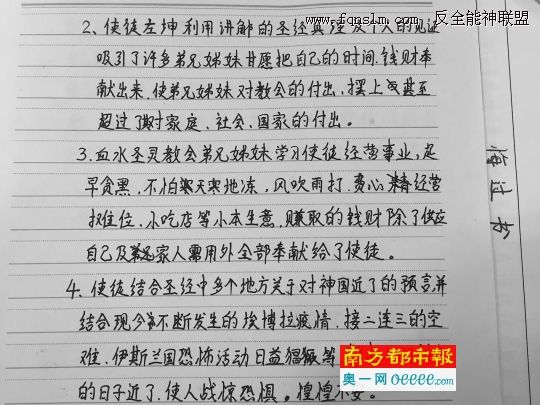 www.fqnslm.com 反全能神联盟
2、使徒左坤利用讲解的圣经真理及个人的见证
吸引了许多弟兄姊妹甘愿把自己的时间、钱财奉
献出来,使弟兄姊妹对教会的付出、摆上 甚至
超过了对家庭、社会、国家的付出。
3、血水圣灵教会弟兄姊妹学习使徒经营事业,起
早贪黑,不怕寒天寒地冻,风吹雨打,费心 经营
拉住位、小吃店等小本生意,赚取的钱财除了供应
自己及 家人需用外全部奉献给了使徒。
4、使徒结合圣经中多个地方关于对神国近了的预言,并
结合现今 不断发生的埃博拉疫情,接二连三的空
难,伊斯兰国恐怖活动日益猖獗等
的日子近了,使人战惊恐惧。惶惶不安。
悔过书
南方都市报
奥一网 oeeee.com